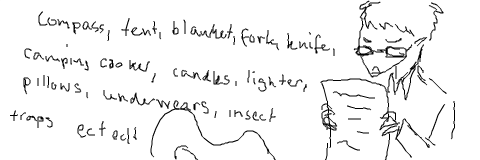 compass, tent, blanket, fork, knife,
camping cooker, candles, lighter,
pillows, underwears, insect
traps ect ect